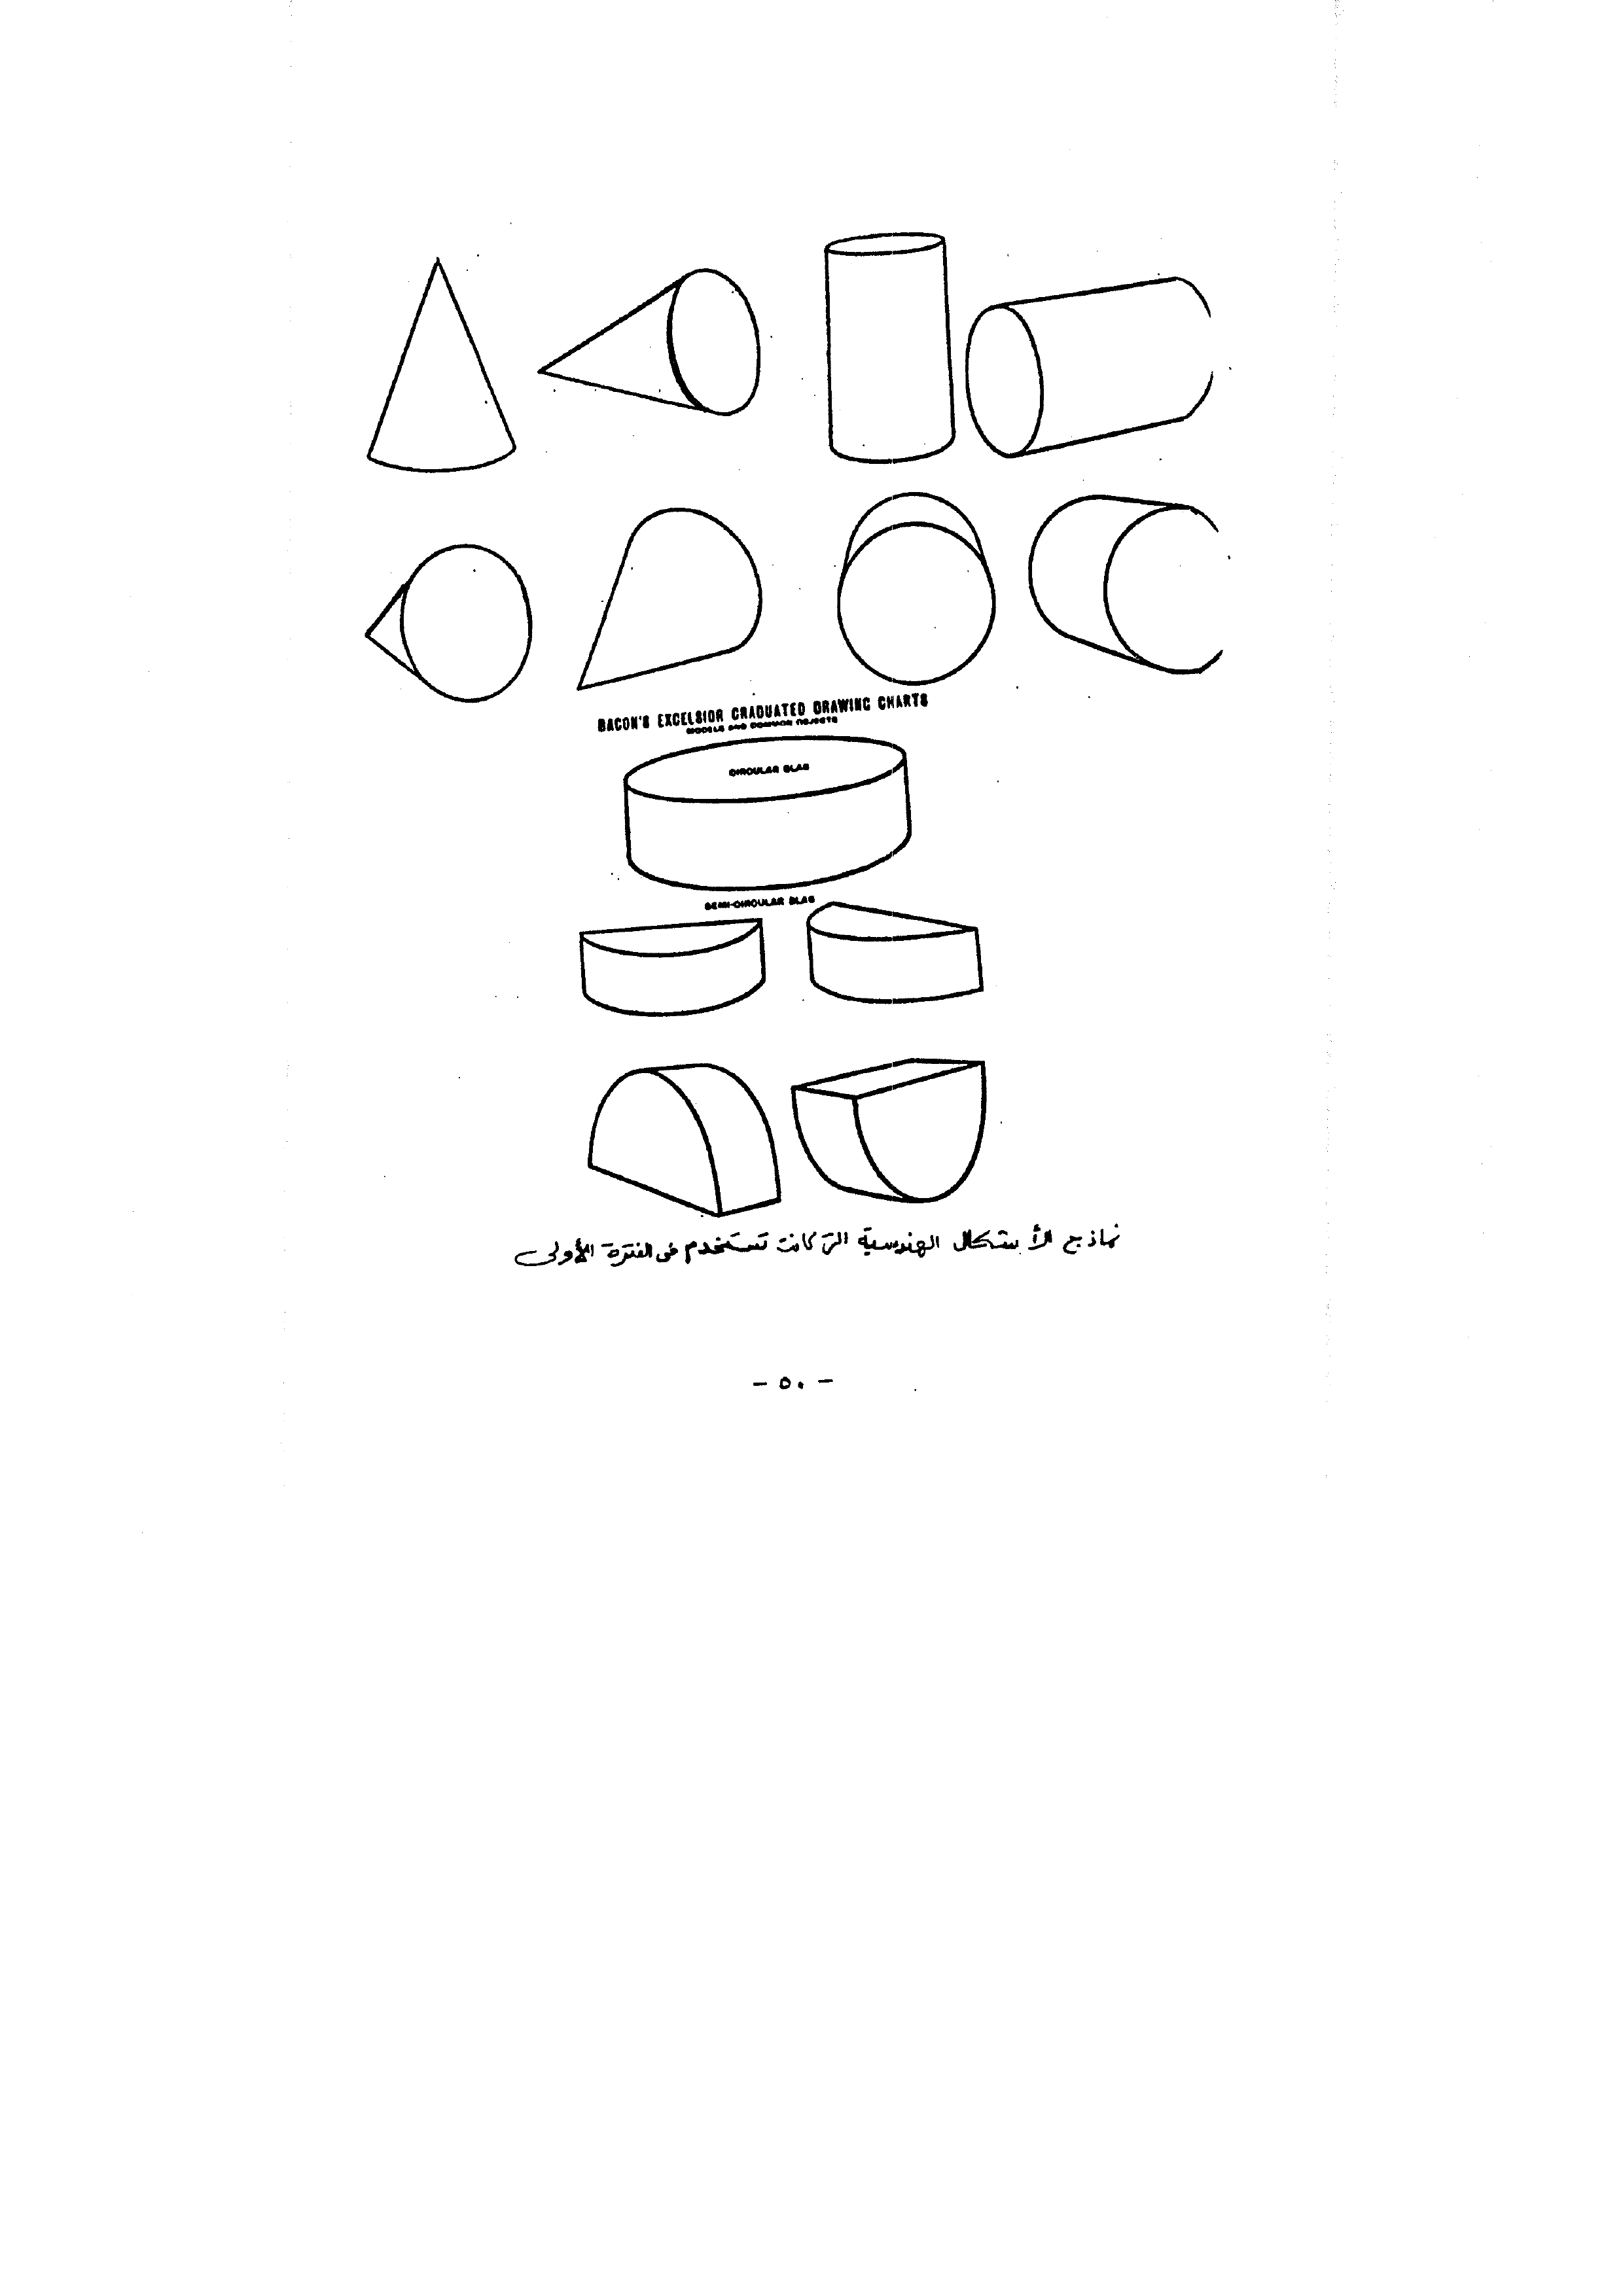 BACON'S EXCELSIOR GRADUATED DRAWING CHARTS
MODELS AND COMMON OBJECTS
CIRCULAR SLAB
SEMI-CIRCULAR SLAB
نماذج الأشكال الهندسية التى كانت تستخدم فى الفترة الأولى
- ٥٠ -